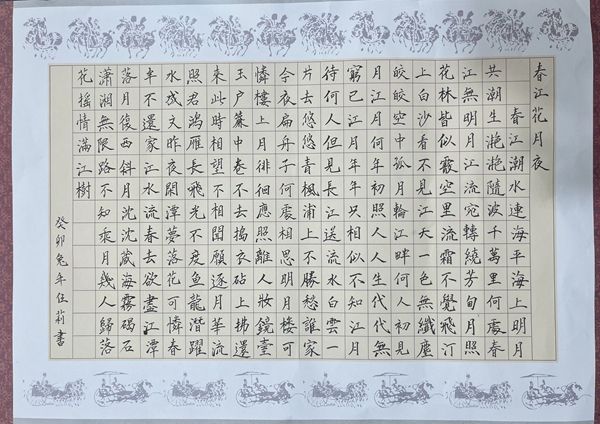 春江花月夜
春江潮水連海平海上明月
共潮生灩灩隨波千萬里何處春
江無明月江流宛轉繞芳甸月照
花林皆似霰空里流霜不覺飛汀
上白沙看不見江天一色無纖塵
皎皎空中孤月輪江畔何人初見
月江月何年初照人人生代代無
窮已江月年年只相似不知江月
待何人但見長江送流水白雲一
片去悠悠青楓浦上不勝愁誰家
今夜扁舟子何處相思明月樓可
憐樓上月徘徊應照離人妝鏡臺
玉户簾中卷不去搗衣砧上拂還
來此時相望不相聞願逐月華流
照君鴻雁長飛光不度魚龍潛躍
水成文昨夜閑潭夢落花可憐春
半不還家江水流春去欲盡江潭
落月復西斜月沈沈藏海霧碣石
瀟湘無限路不知乘月幾人歸落
花搖情滿江樹
癸卯兔年任莉書